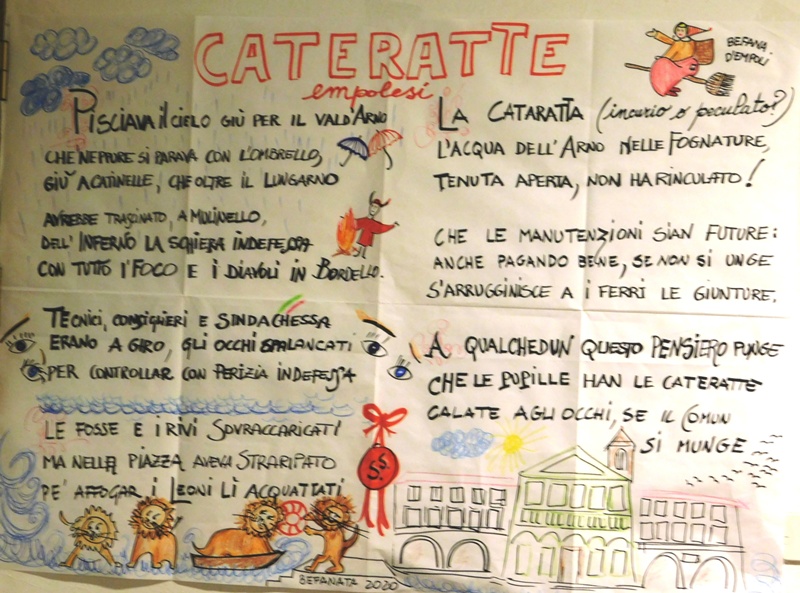 CATERATTE
empolesi
BEFANA
D'EMPOLI
PISCIAVA il CIELO GIÙ PER IL VALD'ARNO
CHE NEPPURE SI PARAVA CON L'OMBRELLO,
GIÙ A CATINELLE, CHE OLTRE IL LUNGARNO
AVREBBE TRASCINATO, A MULINELLO,
DELL'INFERNO LA SCHIERA INDEFESSA
CON TUTTO I'FOCO E I DIAVOLI IN BORDELLO.
TECNICI, CONSIGLIERI E SINDACHESSA
ERANO A GIRO, GLI OCCHI SPALANCATI
PER CONTROLLAR CON PERIZIA INDEFESSA
LE FOSSE E I RIVI SOVRACCARICATI
MA NELLA PIAZZA AVEVA STRARIPATO
PE' AFFOGAR I LEONI LÌ ACQUATTATI
LA CATARATTA (incurio o peculato?)
L'ACQUA DELL'ARNO NELLE FOGNATURE,
TENUTA APERTA, NON HA RINCULATO!
CHE LE MANUTENZIONI SIAN FUTURE:
ANCHE PAGANDO BENE, SE NON SI UNGE
S'ARRUGGINISCE A I FERRI LE GIUNTURE.
A QUALCHEDUN' QUESTO PENSIERO PUNGE
CHE LE PUPILLE HAN LE CATERATTE
CALATE AGLI OCCHI, SE IL COMUN
SI MUNGE
S.S.
BEFANATA 2020